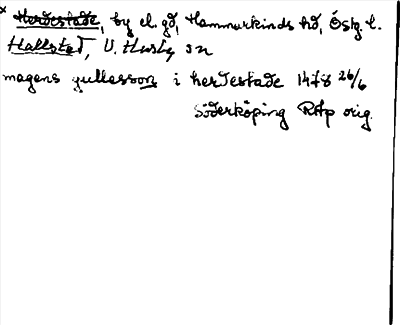 x Herdestade, by el. gd, Hammarkinds hd, Östg. l.
Hallstad, V. Husby sn
magens gullasson i herdestade 1478 26/6
Söderköping RAp orig.